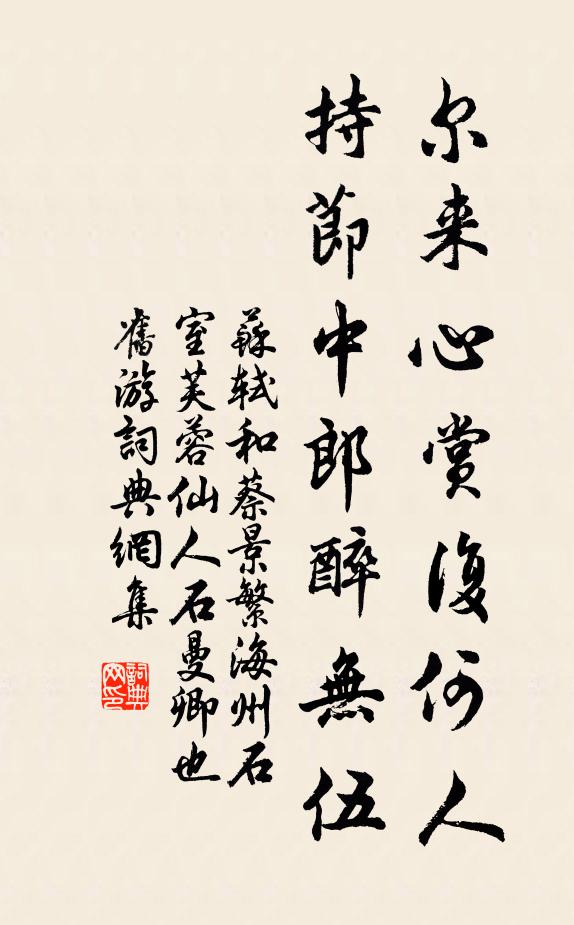 尔来心赏復何人
持節中郎醉無伍
蘇軾和蔡景繁海州石
室芙蓉仙人石曼卿也
舊游詞典網集
詞典
网印